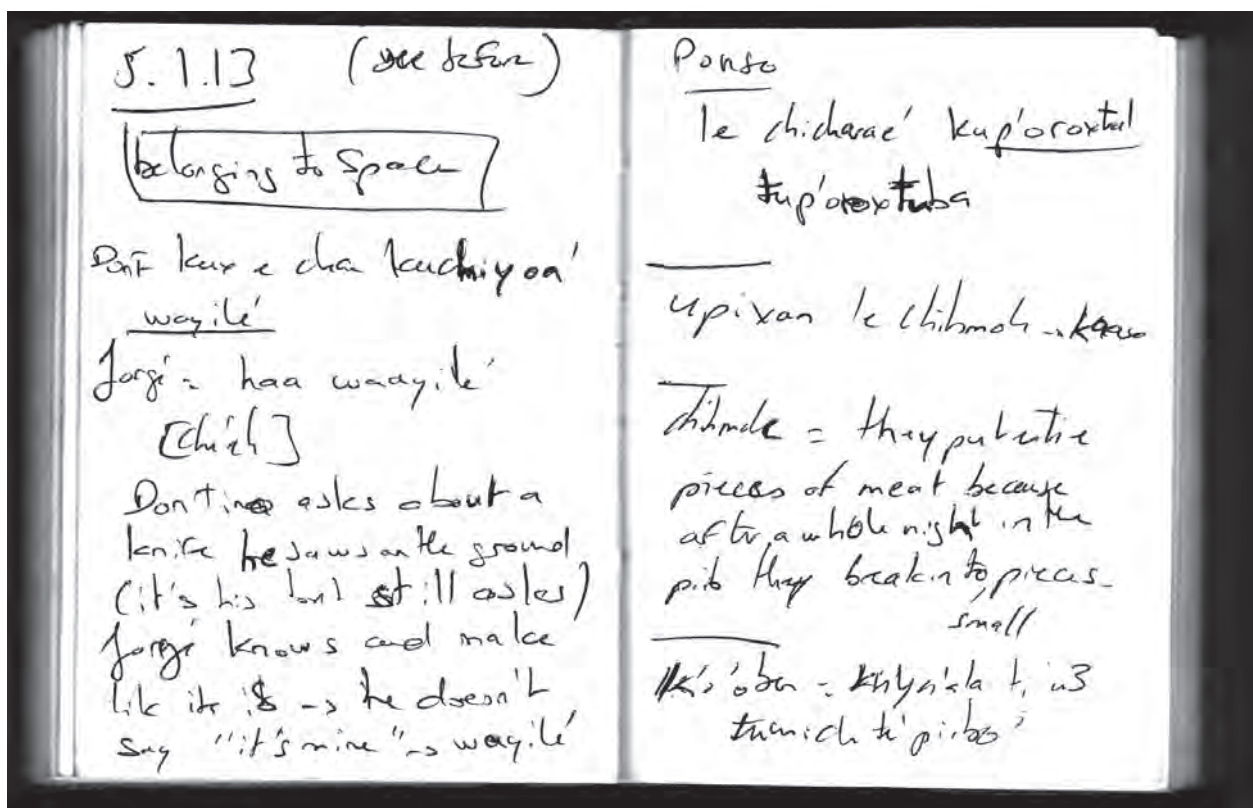 5.1.13 (see before)
belonging to Space
Don F kux e cha kuchiyoa'
wayilé
Jorge = haa waayilé
[chúch]
Don Tino asks about a
knife he saws on the ground
(it's his but still asks)
Jorge knows and make
lik ite is -> he doesn't
say "it's mine" -> wayilé
Ponso
le chicharae' kup'oroxtal
tup'oroxtuba
upixan le chibmoh
chibmole = they put entire
pieces of meat because
after a whole night in the
pib they break into pieces
small
tunich ti' pibo'